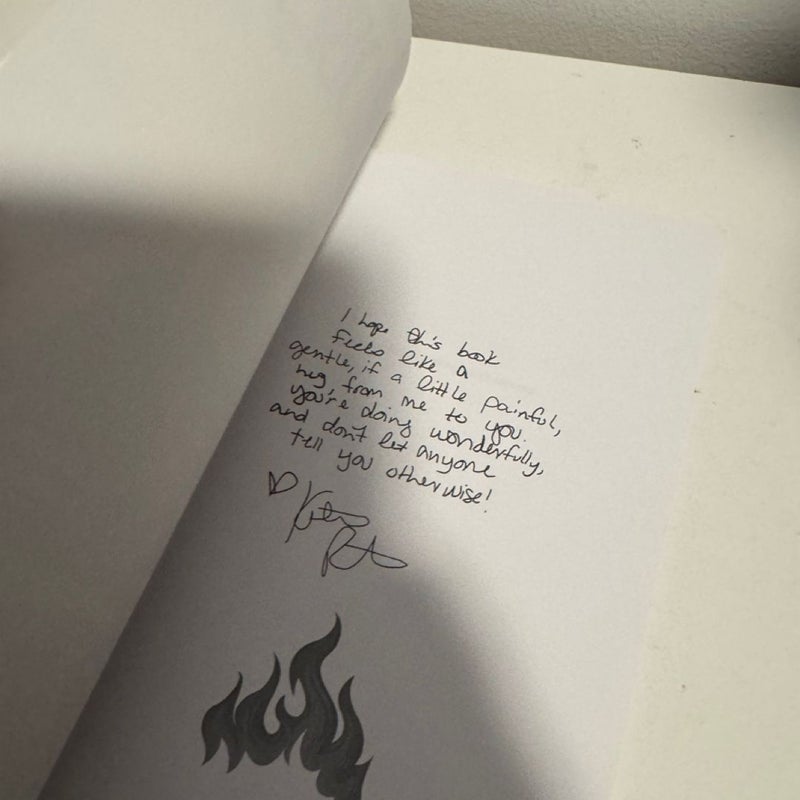 I hope this book
feels like a
gentle, if a little painful,
hug, from me to you.
You're doing wonderfully,
and don't let anyone
tell you otherwise!